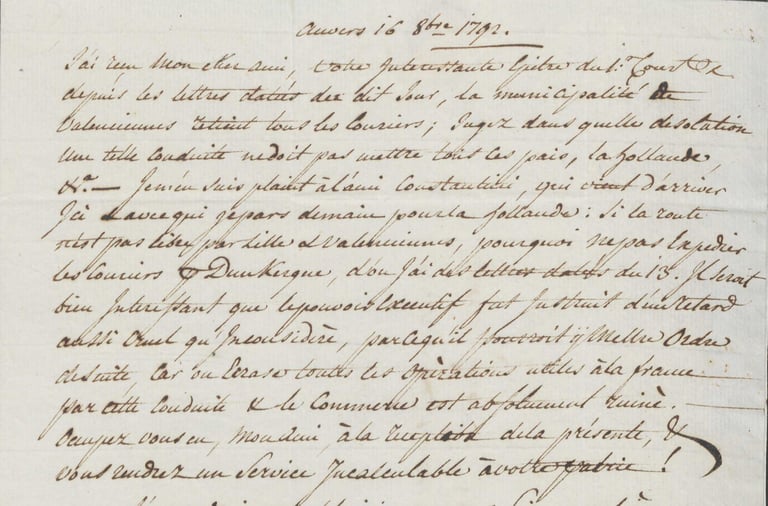 Anvers 16 8bre 1792.
J'ai reçu Mon cher ami, votre Interessante Epitre du 1er Court &
depuis les lettres datées du dit Jour, la municipalité de
Valenciennes retient tous les Couriers; Jugez dans quelle desolation
une telle Conduite ne doit pas mettre tous ces païs, la hollande,
&ra. — Jem'en suis plaint à l'ami Constantini, qui vient d'arriver
Ici & avec qui je pars demain pour la hollande: Si la route
n'est pas libre par Lille & Valenciennes, pourquoi ne pas Expedier
les Couriers p Dunkerque, d'ou J'ai des lettres datées du 13. Il seroit
bien Interessant que le pouvoir Executif fut Instruit d'un Retard
aussi Cruel qu'Inconsidéré, parcequ'il pourroit y Mettre Ordre
de suite, Car on Ecrase toutes les Opèrations utiles à la france
par cette Conduite & le Commerce est absolument ruiné. —
Occupez vous en, mon ami, à la reception de la présente, &
vous rendrez un Service Incalculable à votre patrie!